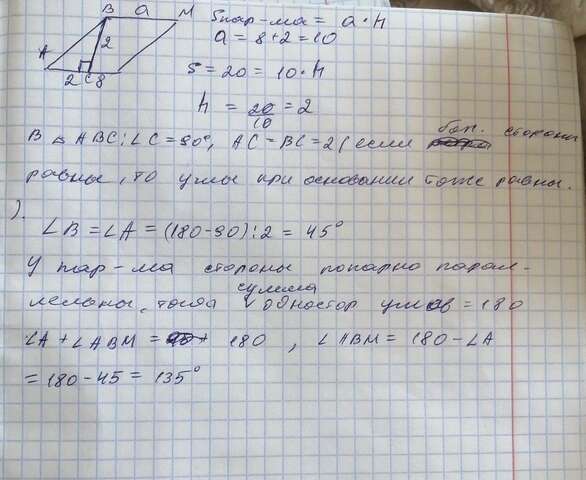 B a M
A 2
2 C 8
Sпар-ма = a · h
a = 8 + 2 = 10
S = 20 = 10 · h
h = 20/10 = 2
В △ ABC: ∠C = 90°, AC = BC = 2 (если бок. стороны
равны, то углы при основании тоже равны.
).
∠B = ∠A = (180-90):2 = 45°
У пар-ма стороны попарно парал-
лельны, тогда сумма одностор углов = 180
∠A + ∠ABM = 180, ∠ABM = 180 - ∠A
= 180 - 45 = 135°